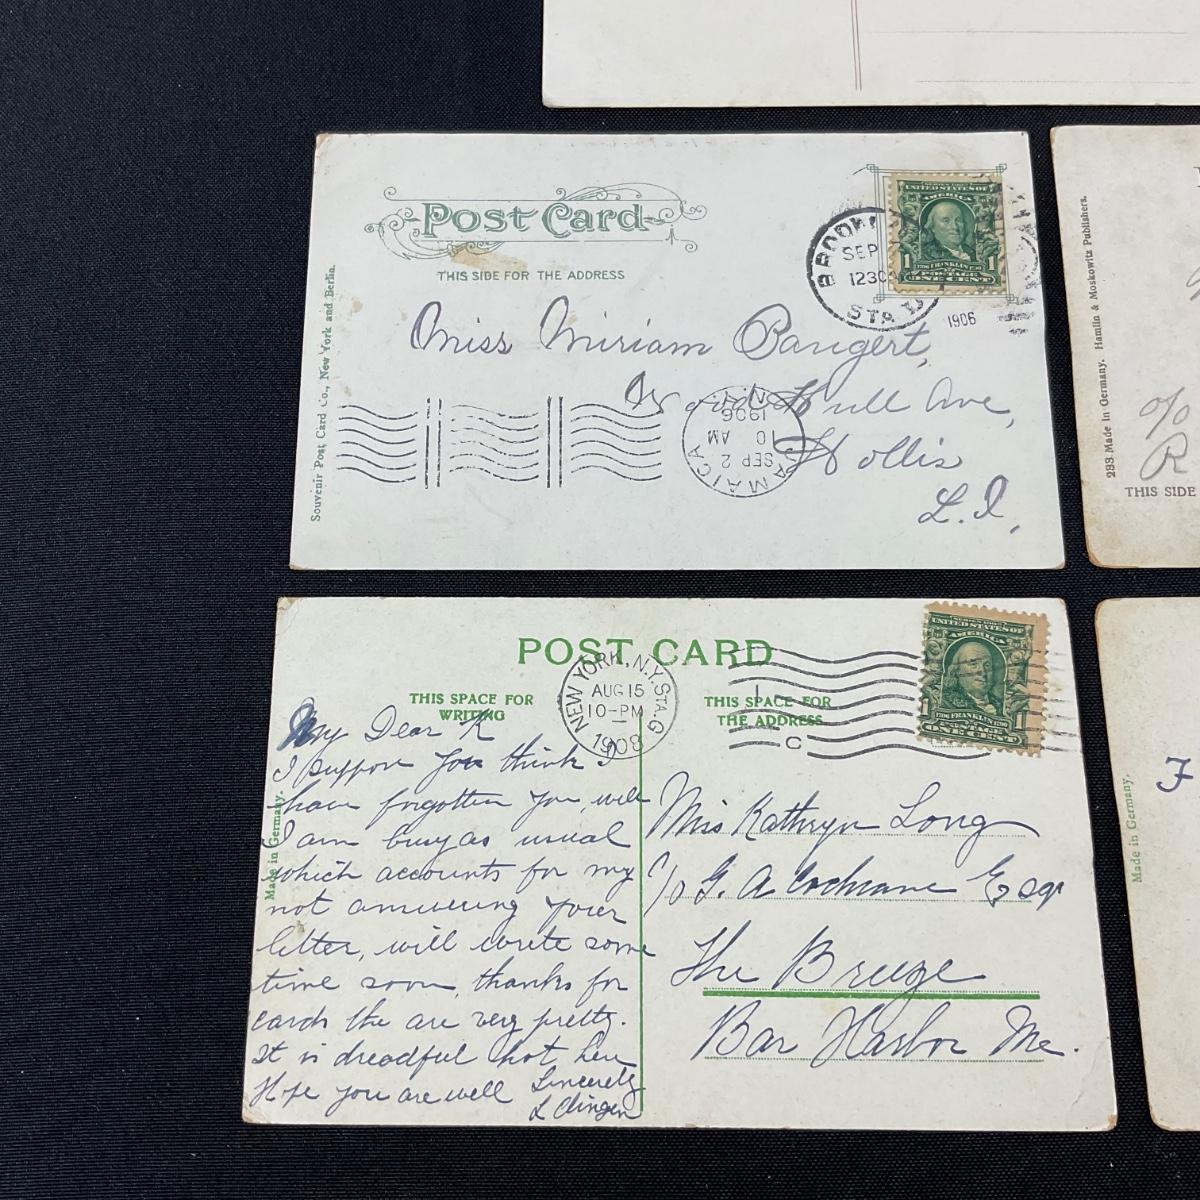 Post Card
THIS SIDE FOR THE ADDRESS
Souvenir Post Card Co., New York and Berlin.
UNITED STATES OF
AMERICA
1 1
POSTAGE
ONE CENT
BROOK
SEP
1230
STA.
1906
Miss Miriam Bangert,
Woodhull Ave,
Hollis
L.I.
JAMAICA
SEP 2
10 AM
1906
N.Y.
283 Made in Germany. Hamlin & Moskowitz Publishers.
c/o
R
THIS SIDE
POST CARD
THIS SPACE FOR
WRITING
THIS SPACE FOR
THE ADDRESS
NEW YORK, N.Y. STA. G
AUG 15
10-PM
1908
C
UNITED STATES OF
AMERICA
1706 FRANKLIN 1790
1 1
POSTAGE
ONE CENT
Made in Germany.
My Dear K
I suppose you think I
have forgotten you, well
I am busy as usual
which accounts for my
not answering your
letter, will write some
time soon, thanks for
cards the are very pretty.
It is dreadful hot here
Hope you are well Sincerely
L
Miss Kathryn Long
c/o G. A Cochrane Esqr
The Breeze
Bar Harbor Me.
Made in Germany.
F